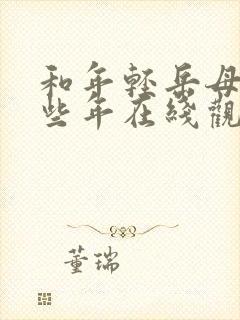 和年轻岳母
些年在线觀
董瑞